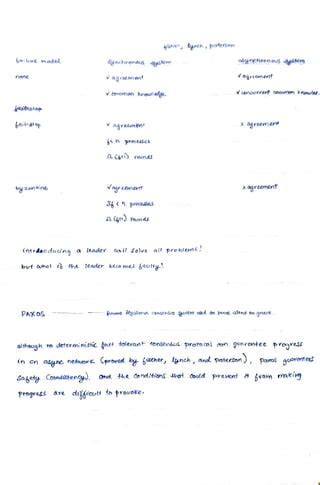 fisher, lynch, paterson
failure model synchronous system asynchronous system
none ✓ agreement ✓ agreement
✓ common knowledge ✓ concurrent common knowled.
failstop ✓ agreement x agreement
f < n processes
Ω (f+1) rounds
byzantine ✓ agreement x agreement
processes
Ω (f+1) rounds
introducing a leader will solve all problems!
but what if the leader becomes faulty!
PAXOS
although no deterministic fault tolerant consensus protocol can guarantee progress
in an async network (proved by fischer, lynch, and paterson), paxos guarantees
safety (consistency), and the conditions that could prevent it from making
progress are difficult to provoke.